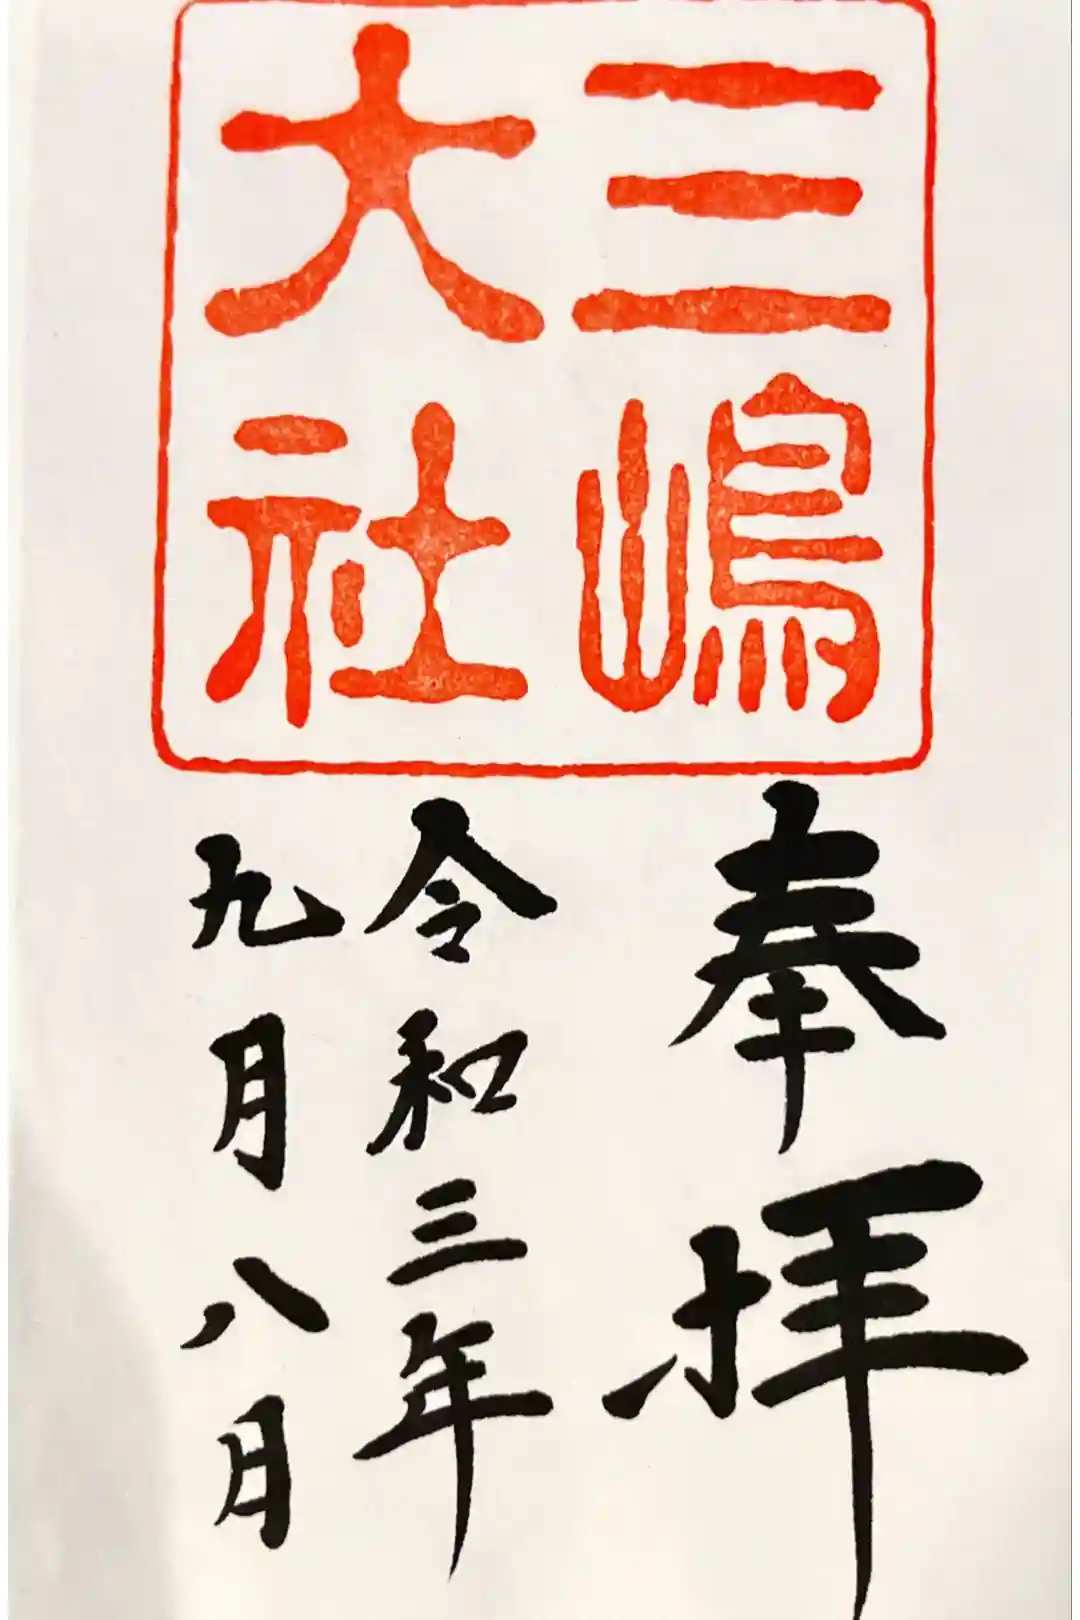 三嶋
大社
奉拝
令和三年
九月八日